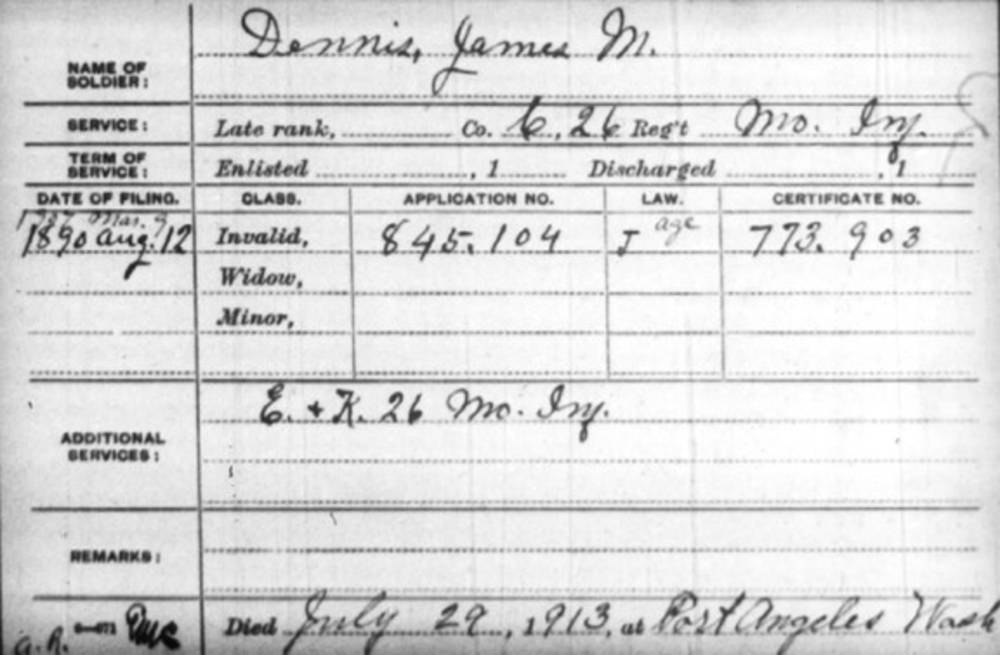 Dennis, James M.
NAME OF
SOLDIER:
SERVICE: Late rank, Co. C, 26 Reg't Mo. Inf.
TERM OF
SERVICE: Enlisted , 1 Discharged , 1
DATE OF FILING. CLASS. APPLICATION NO. LAW. CERTIFICATE NO.
1907 Mar. 9
1890 Aug. 12 Invalid, 845.104 J age 773.903
Widow,
Minor,
E. & K. 26 Mo. Inf.
ADDITIONAL
SERVICES:
REMARKS:
Died July 29, 1913, at Port Angeles Wash
a.R.